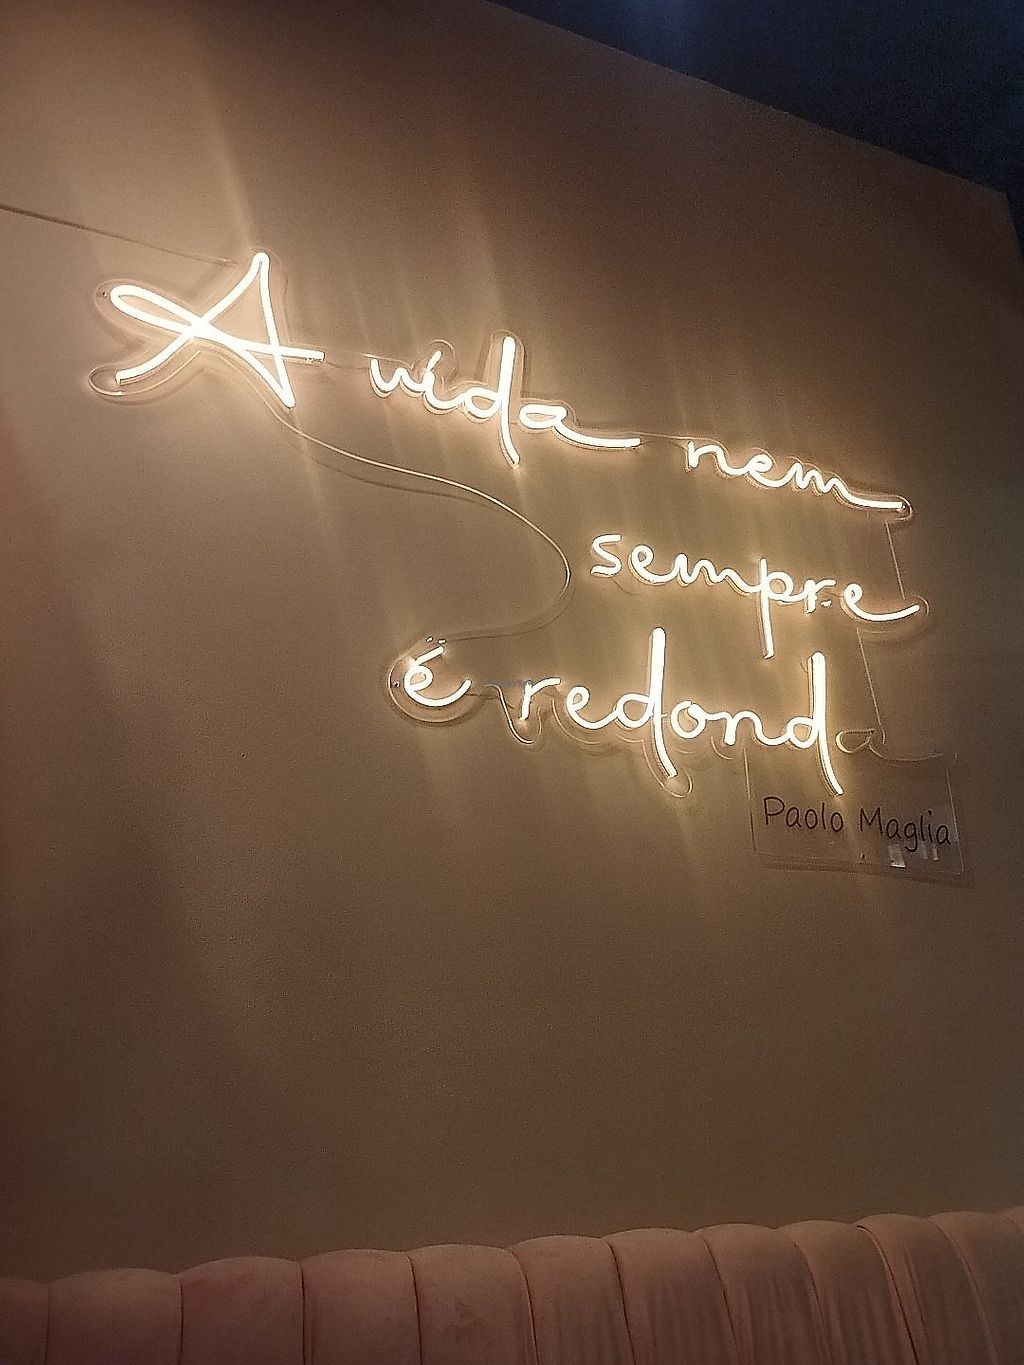 A vida nem
sempre
é redonda
Paolo Maglia